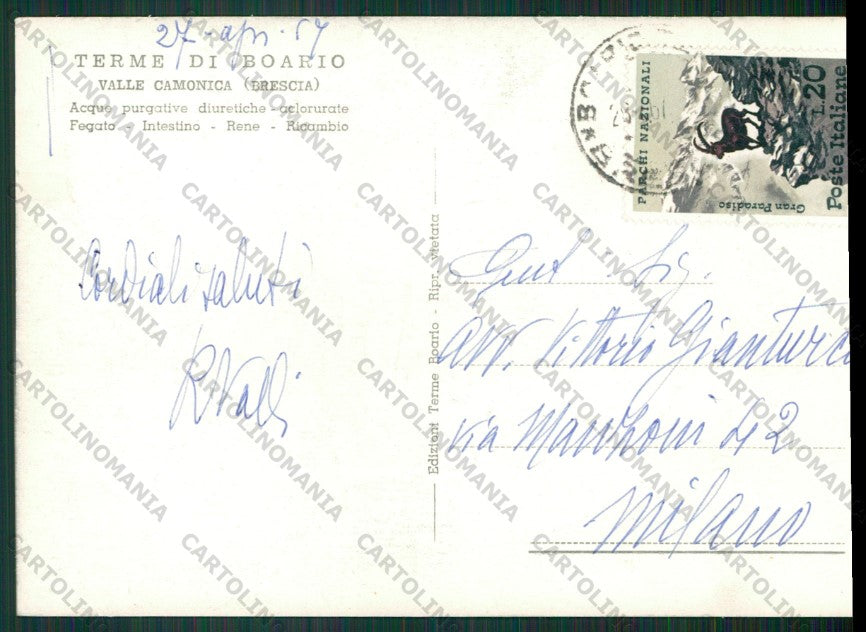 27 - apr. 67
TERME DI BOARIO
VALLE CAMONICA (BRESCIA)
Acque purgative diuretiche - aclorurate
Fegato - Intestino - Rene - Ricambio
Cordiali saluti
R Valli
Edizioni Terme Boario - Ripr. vietata
PARCHI NAZIONALI
Gran Paradiso
L.20
Poste Italiane
Gent. Sig.
Avv. Vittorio Gianturco
via Manzoni 42
Milano
CARTOLINOMANIA